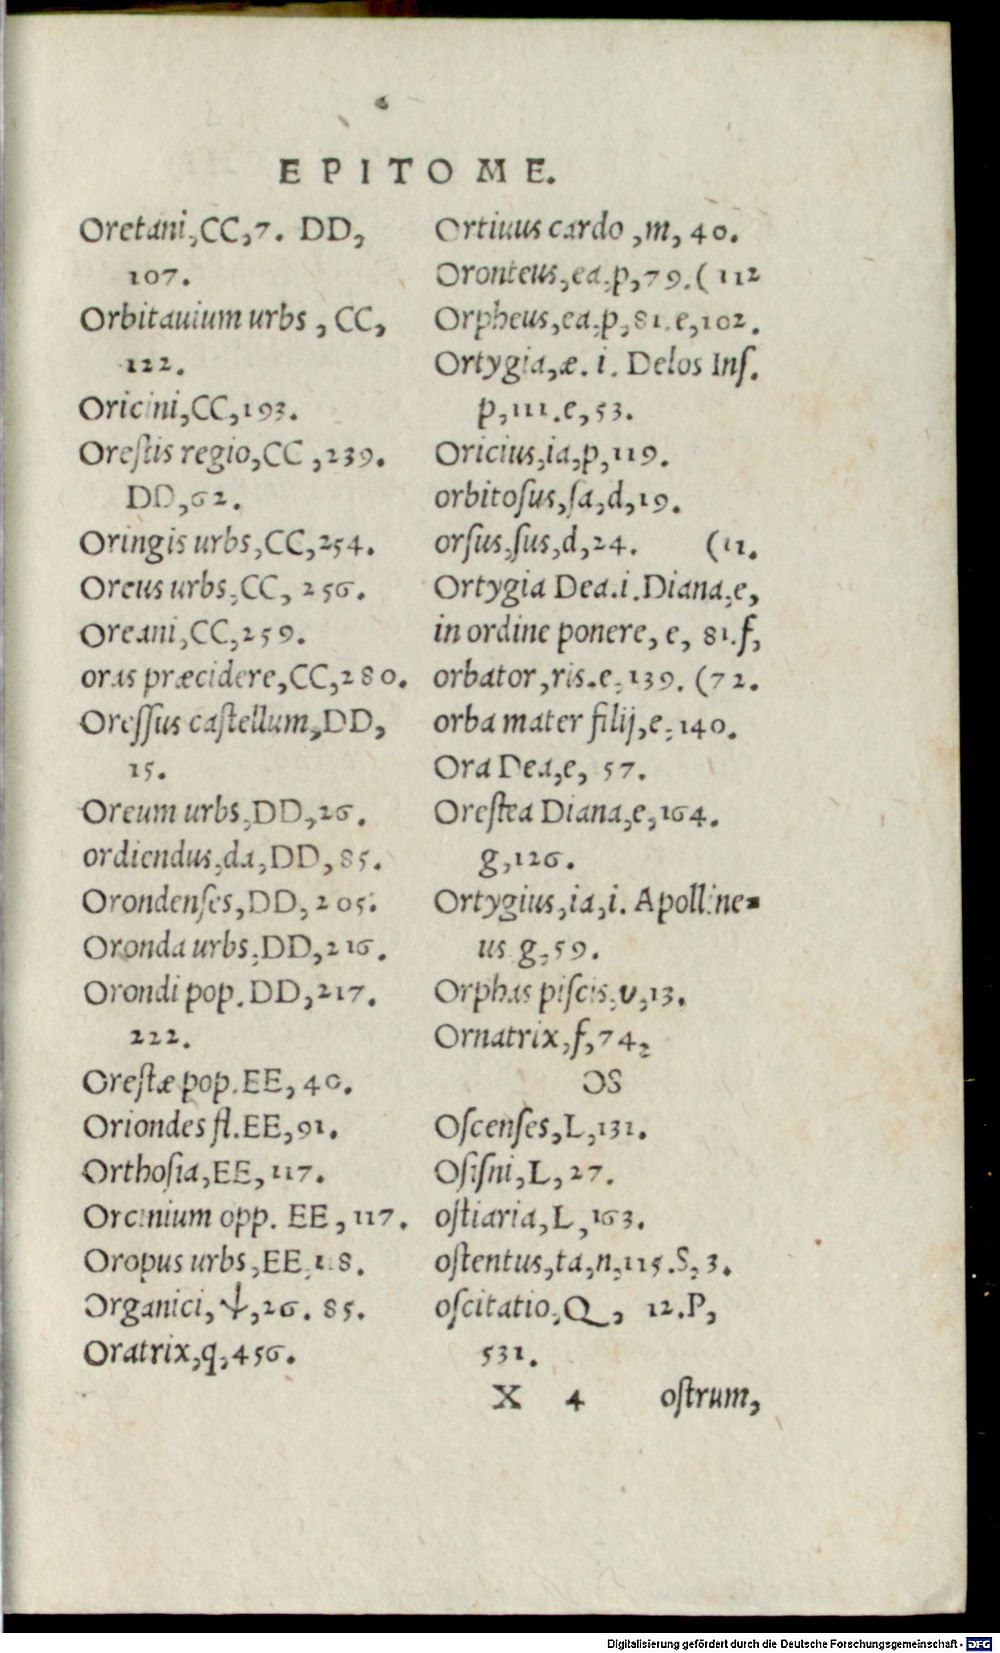 EPITOME.
Oretani,CC,7. DD,
107.
Orbitauium urbs, CC,
122.
Oricini,CC,193.
Oreſtis regio,CC,239.
DD,62.
Oringis urbs,CC,254.
Oreus urbs,CC, 256.
Oreani,CC,259.
oras præcidere,CC,280.
Oreſſus caſtellum,DD,
15.
Oreum urbs,DD,26.
ordiendus,da,DD,85.
Orondenſes,DD,205.
Oronda urbs,DD,216.
Orondi pop.DD,217.
222.
Oreſtæ pop.EE,40.
Oriondes fl.EE,91.
Orthoſia,EE,117.
Orcinium opp. EE,117.
Oropus urbs,EE
Organici,Ψ,26. 85.
Oratrix,q,456.
Ortiuus cardo,m,40.
Oronteus,ea,p,79.(112
Orpheus,ea,p,81.e,102.
Ortygia,æ. i. Delos Inſ.
p,111.e,53.
Oricius,ia,p,119.
orbitoſus,ſa,d,19.
orſus,ſus,d,24. (11.
Ortygia Dea.i.Diana,e,
in ordine ponere, e, 81.f,
orbator,ris.e,139. (72.
orba mater filij,e,140.
Ora Dea,e, 57.
Oreſtea Diana,e,164.
g,126.
Ortygius,ia,i. Apolline-
us g,59.
Orphas piſcis,v,13.
Ornatrix,f,74,
OS
Oſcenſes,L,131.
Oſiſni,L,27.
oſtiaria,L,163.
oſtentus,ta,n,115.S,3.
oſcitatio,Q, 12.P,
531.
X 4 oſtrum,
Digitalisierung gefördert durch die Deutsche Forschungsgemeinschaft - DFG